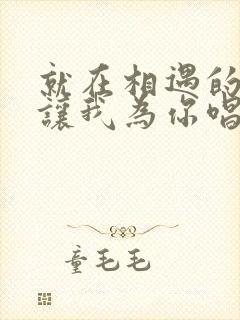 就在相遇的
讓我為你唱
童毛毛